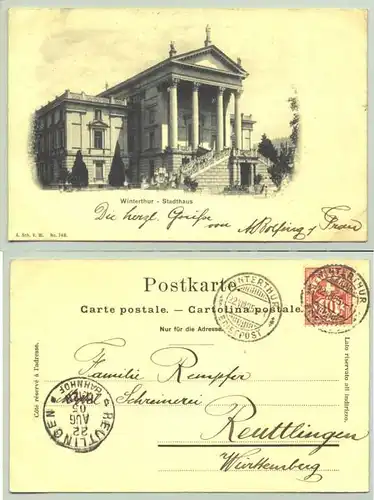 Winterthur - Stadthaus
Die herzl. Grüsse von
Frau
Postkarte.
Carte postale. — Cartolina postale.
Nur für die Adresse.
Côté réservé à l'adresse.
Lato riservato all indirizzo.
WINTERTHUR
BRIEFPOST
WINTERTHUR
10
Familie Rempfer
Schreinerei
Reuttlingen
Württemberg
REUTLINGEN
BAHNHOF
22
AUG
05